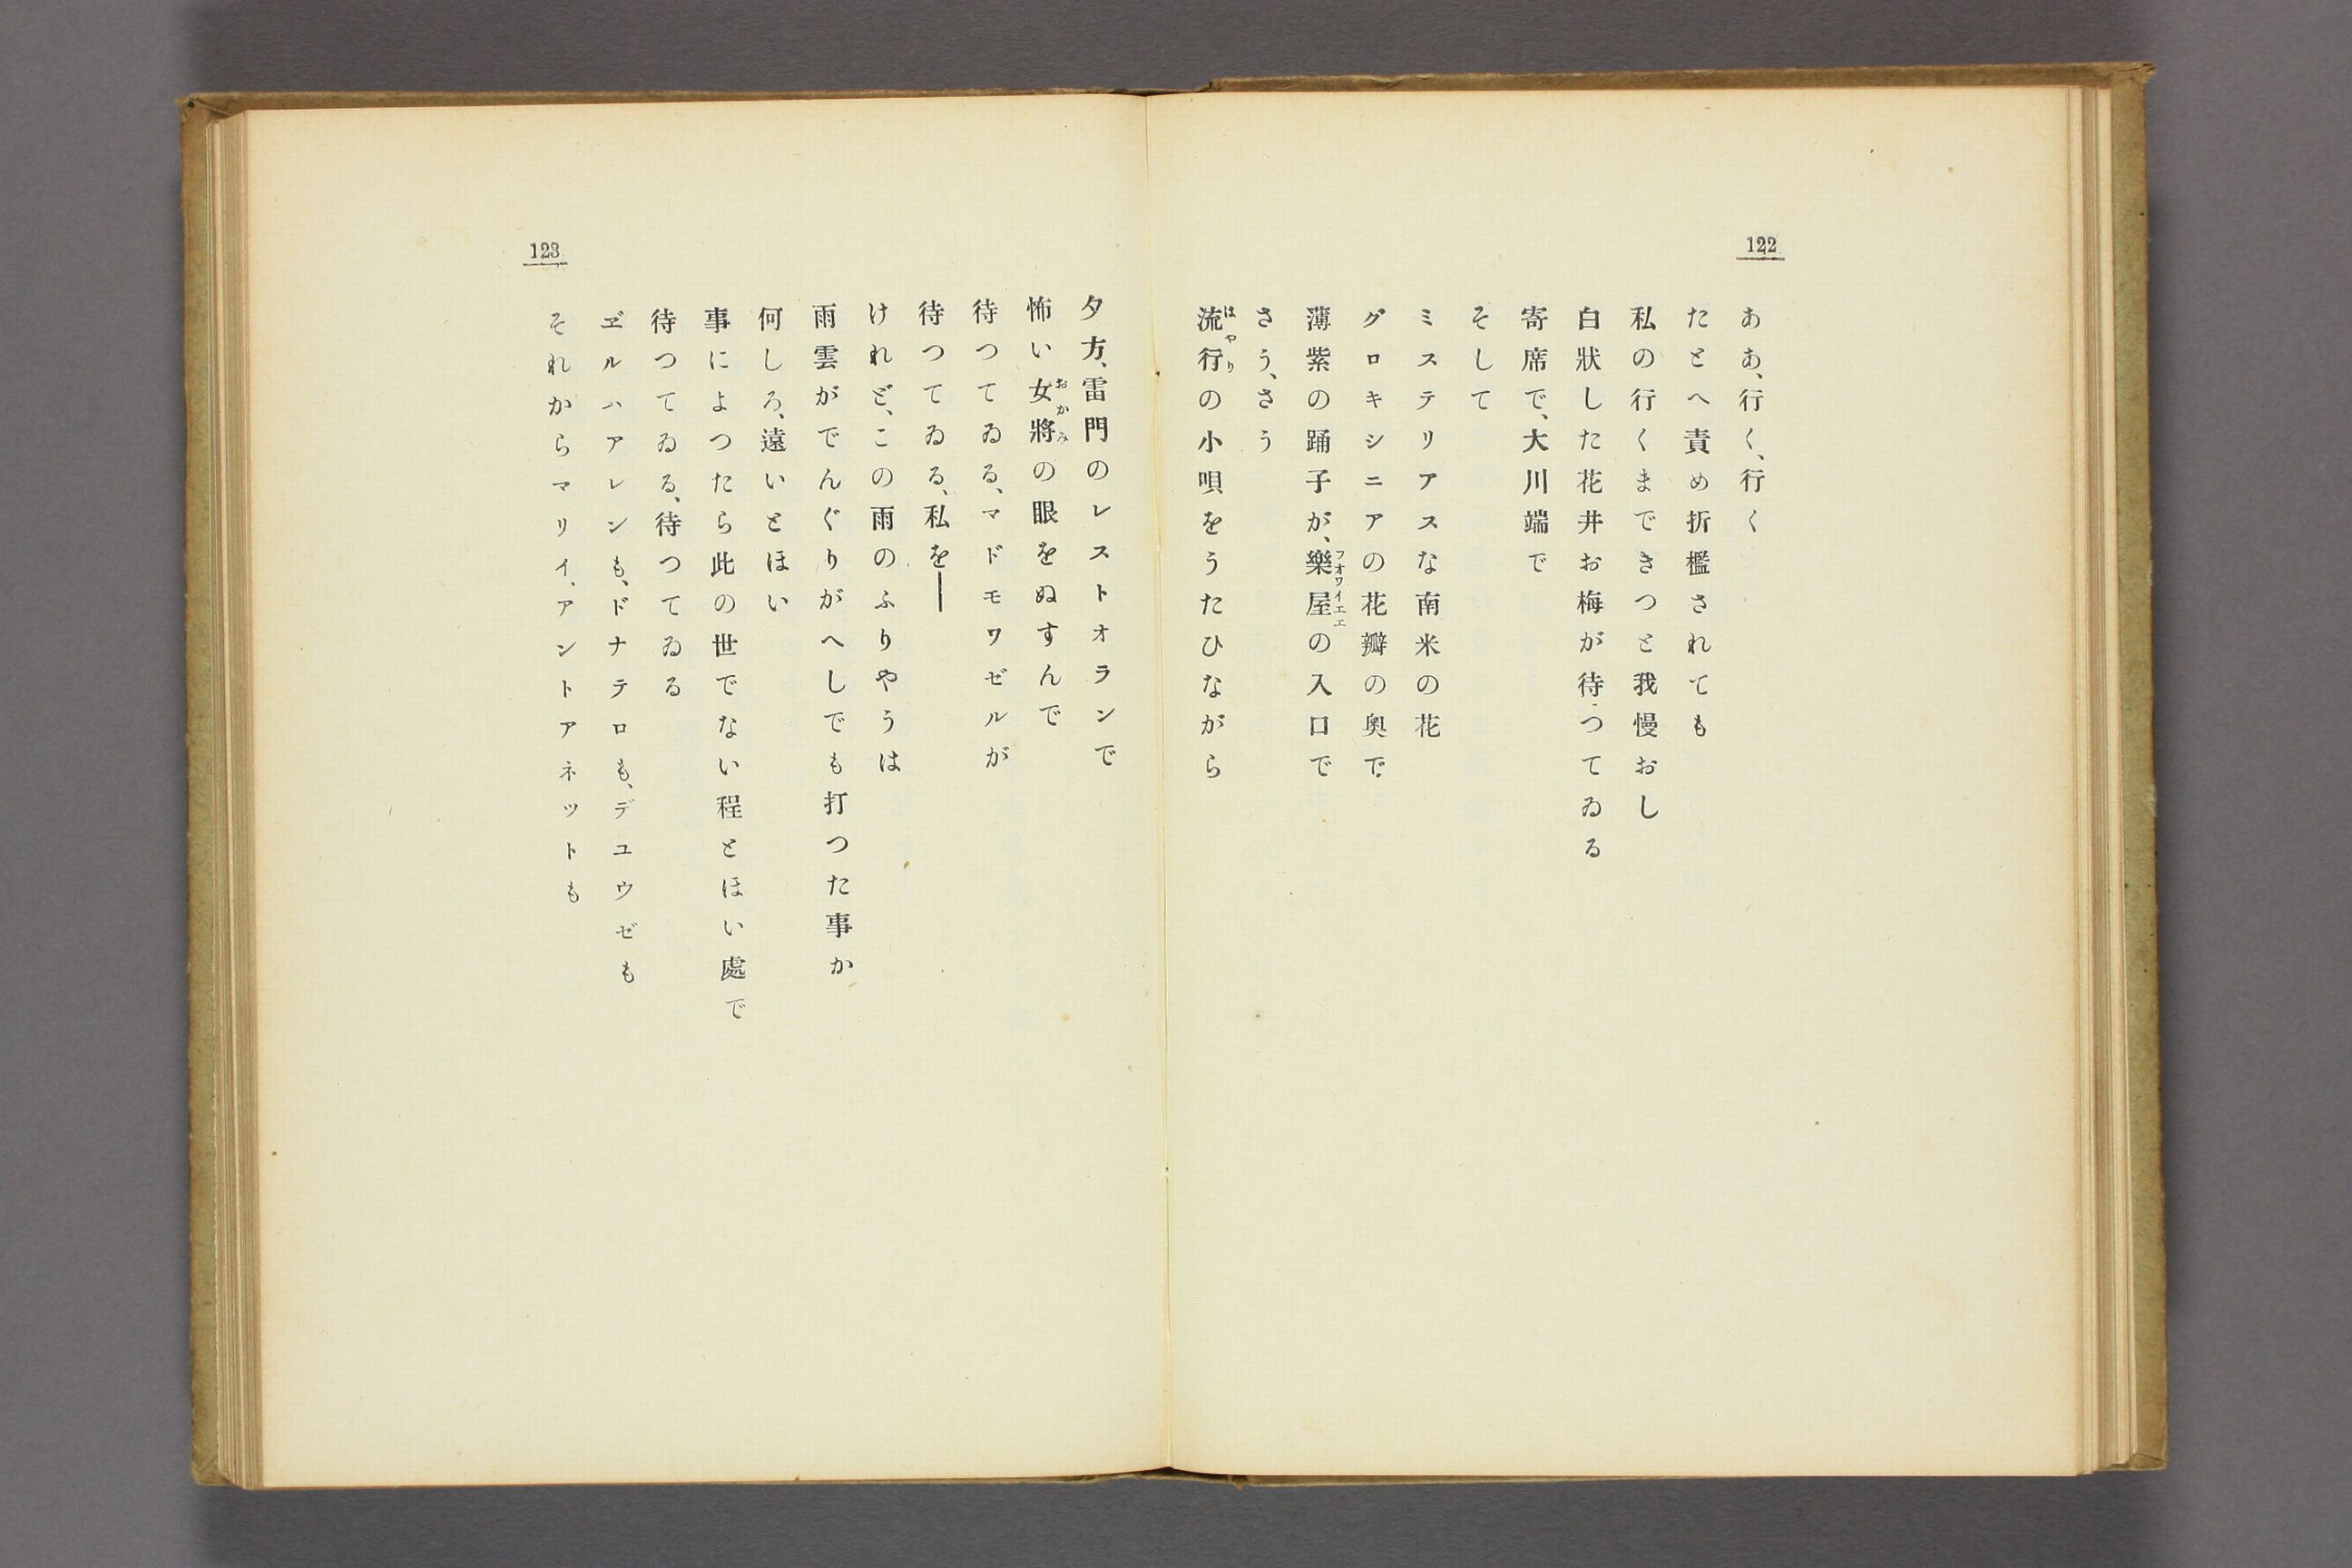 122
ああ、行く、行く
たとへ責め折檻されても
私の行くまできつと我慢おし
白狀した花井お梅が待つてゐる
寄席で、大川端で
そして
ミステリアスな南米の花
グロキシニアの花瓣の奥で
薄紫の踊子が、樂屋の入口で
フオワイエエ
さう、さう
流行の小唄をうたひながら
はやり
123
夕方、雷門のレストオランで
怖い女將の眼をぬすんで
おかみ
待つてゐる、マドモワゼルが
待つてゐる、私を――
けれど、この雨のふりやうは
雨雲がでんぐりがへしでも打つた事か
何しろ、遠いとほい
事によつたら此の世でない程とほい處で
待つてゐる、待つてゐる
ヱルハアレンも、ドナテロも、デユウゼも
それからマリイ、アントアネットも